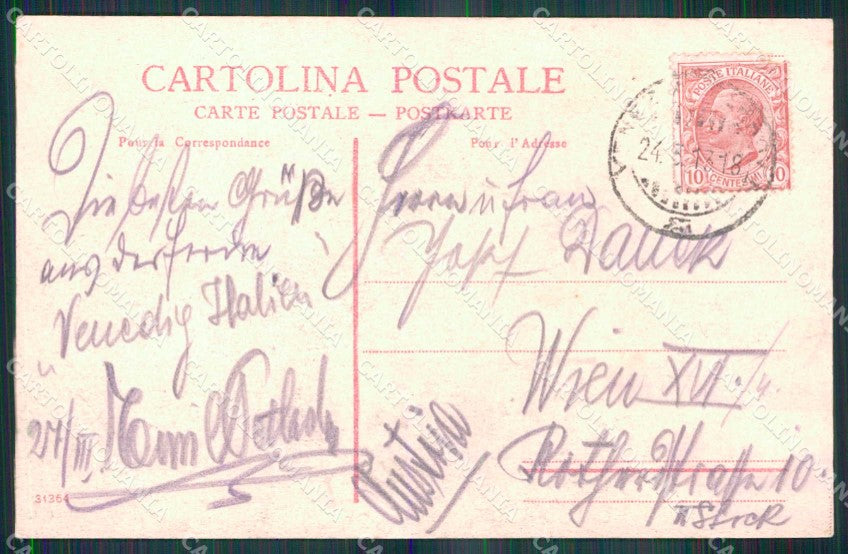 CARTOLINA POSTALE
CARTE POSTALE — POSTKARTE
Pour la Correspondance
Pour l'Adresse
POSTE ITALIANE
10 CENTESIMI 10
Die besten Grüße
aus der Ferne
Venedig Italien
24/III
31364
Herrn u Frau
Josef
Wien XVI/4
10
II Stock
Austria
CARTOLINOMANIA